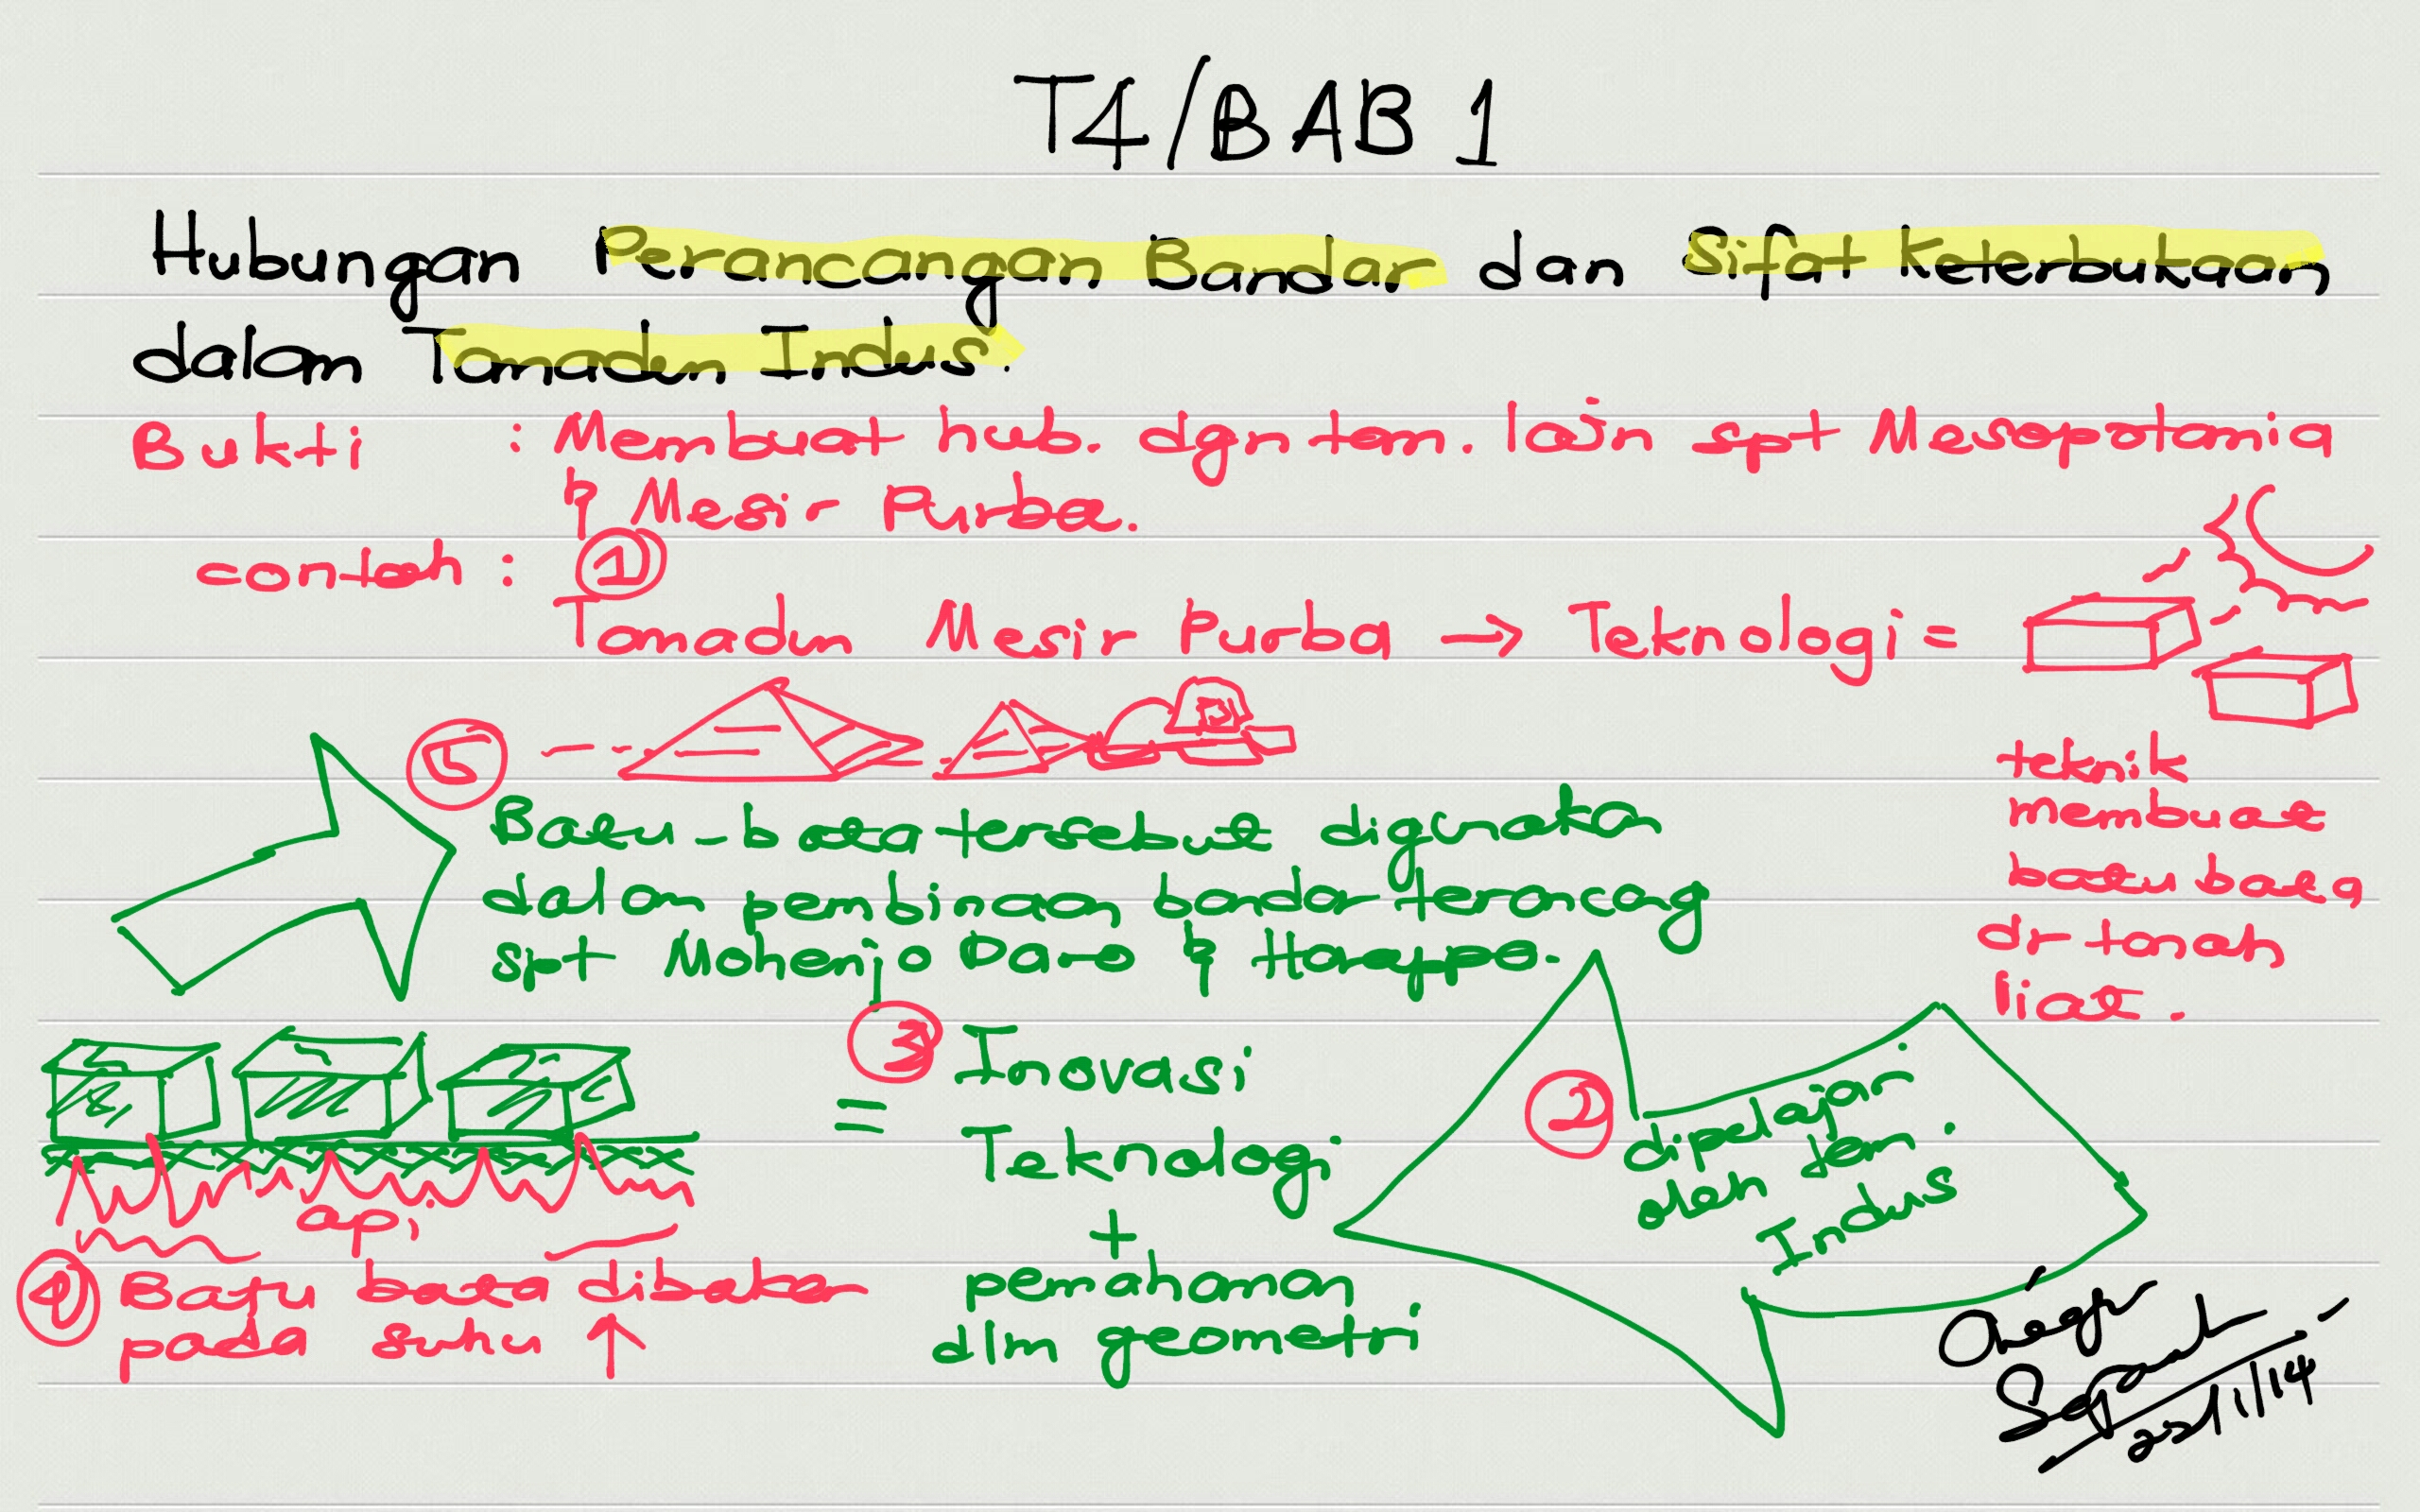 T4/BAB 1
Hubungan Perancangan Bandar dan Sifat Keterbukaan
dalam Tamadun Indus.
Bukti : Membuat hub. dgn tam. lain spt Mesopotamia
& Mesir Purba.
contoh : 1
Tamadun Mesir Purba → Teknologi =
teknik
membuat
batu bata
dr tanah
liat.
5
Batu-bata tersebut digunakan
dalam pembinaan bandar terancang
spt Mohenjo Daro & Harappa.
2
dipelajari
oleh tam.
Indus
= 3 Inovasi
Teknologi
+
pemahaman
dlm geometri
api
4 Batu bata dibakar
pada suhu ↑
Cikgu
22/1/14